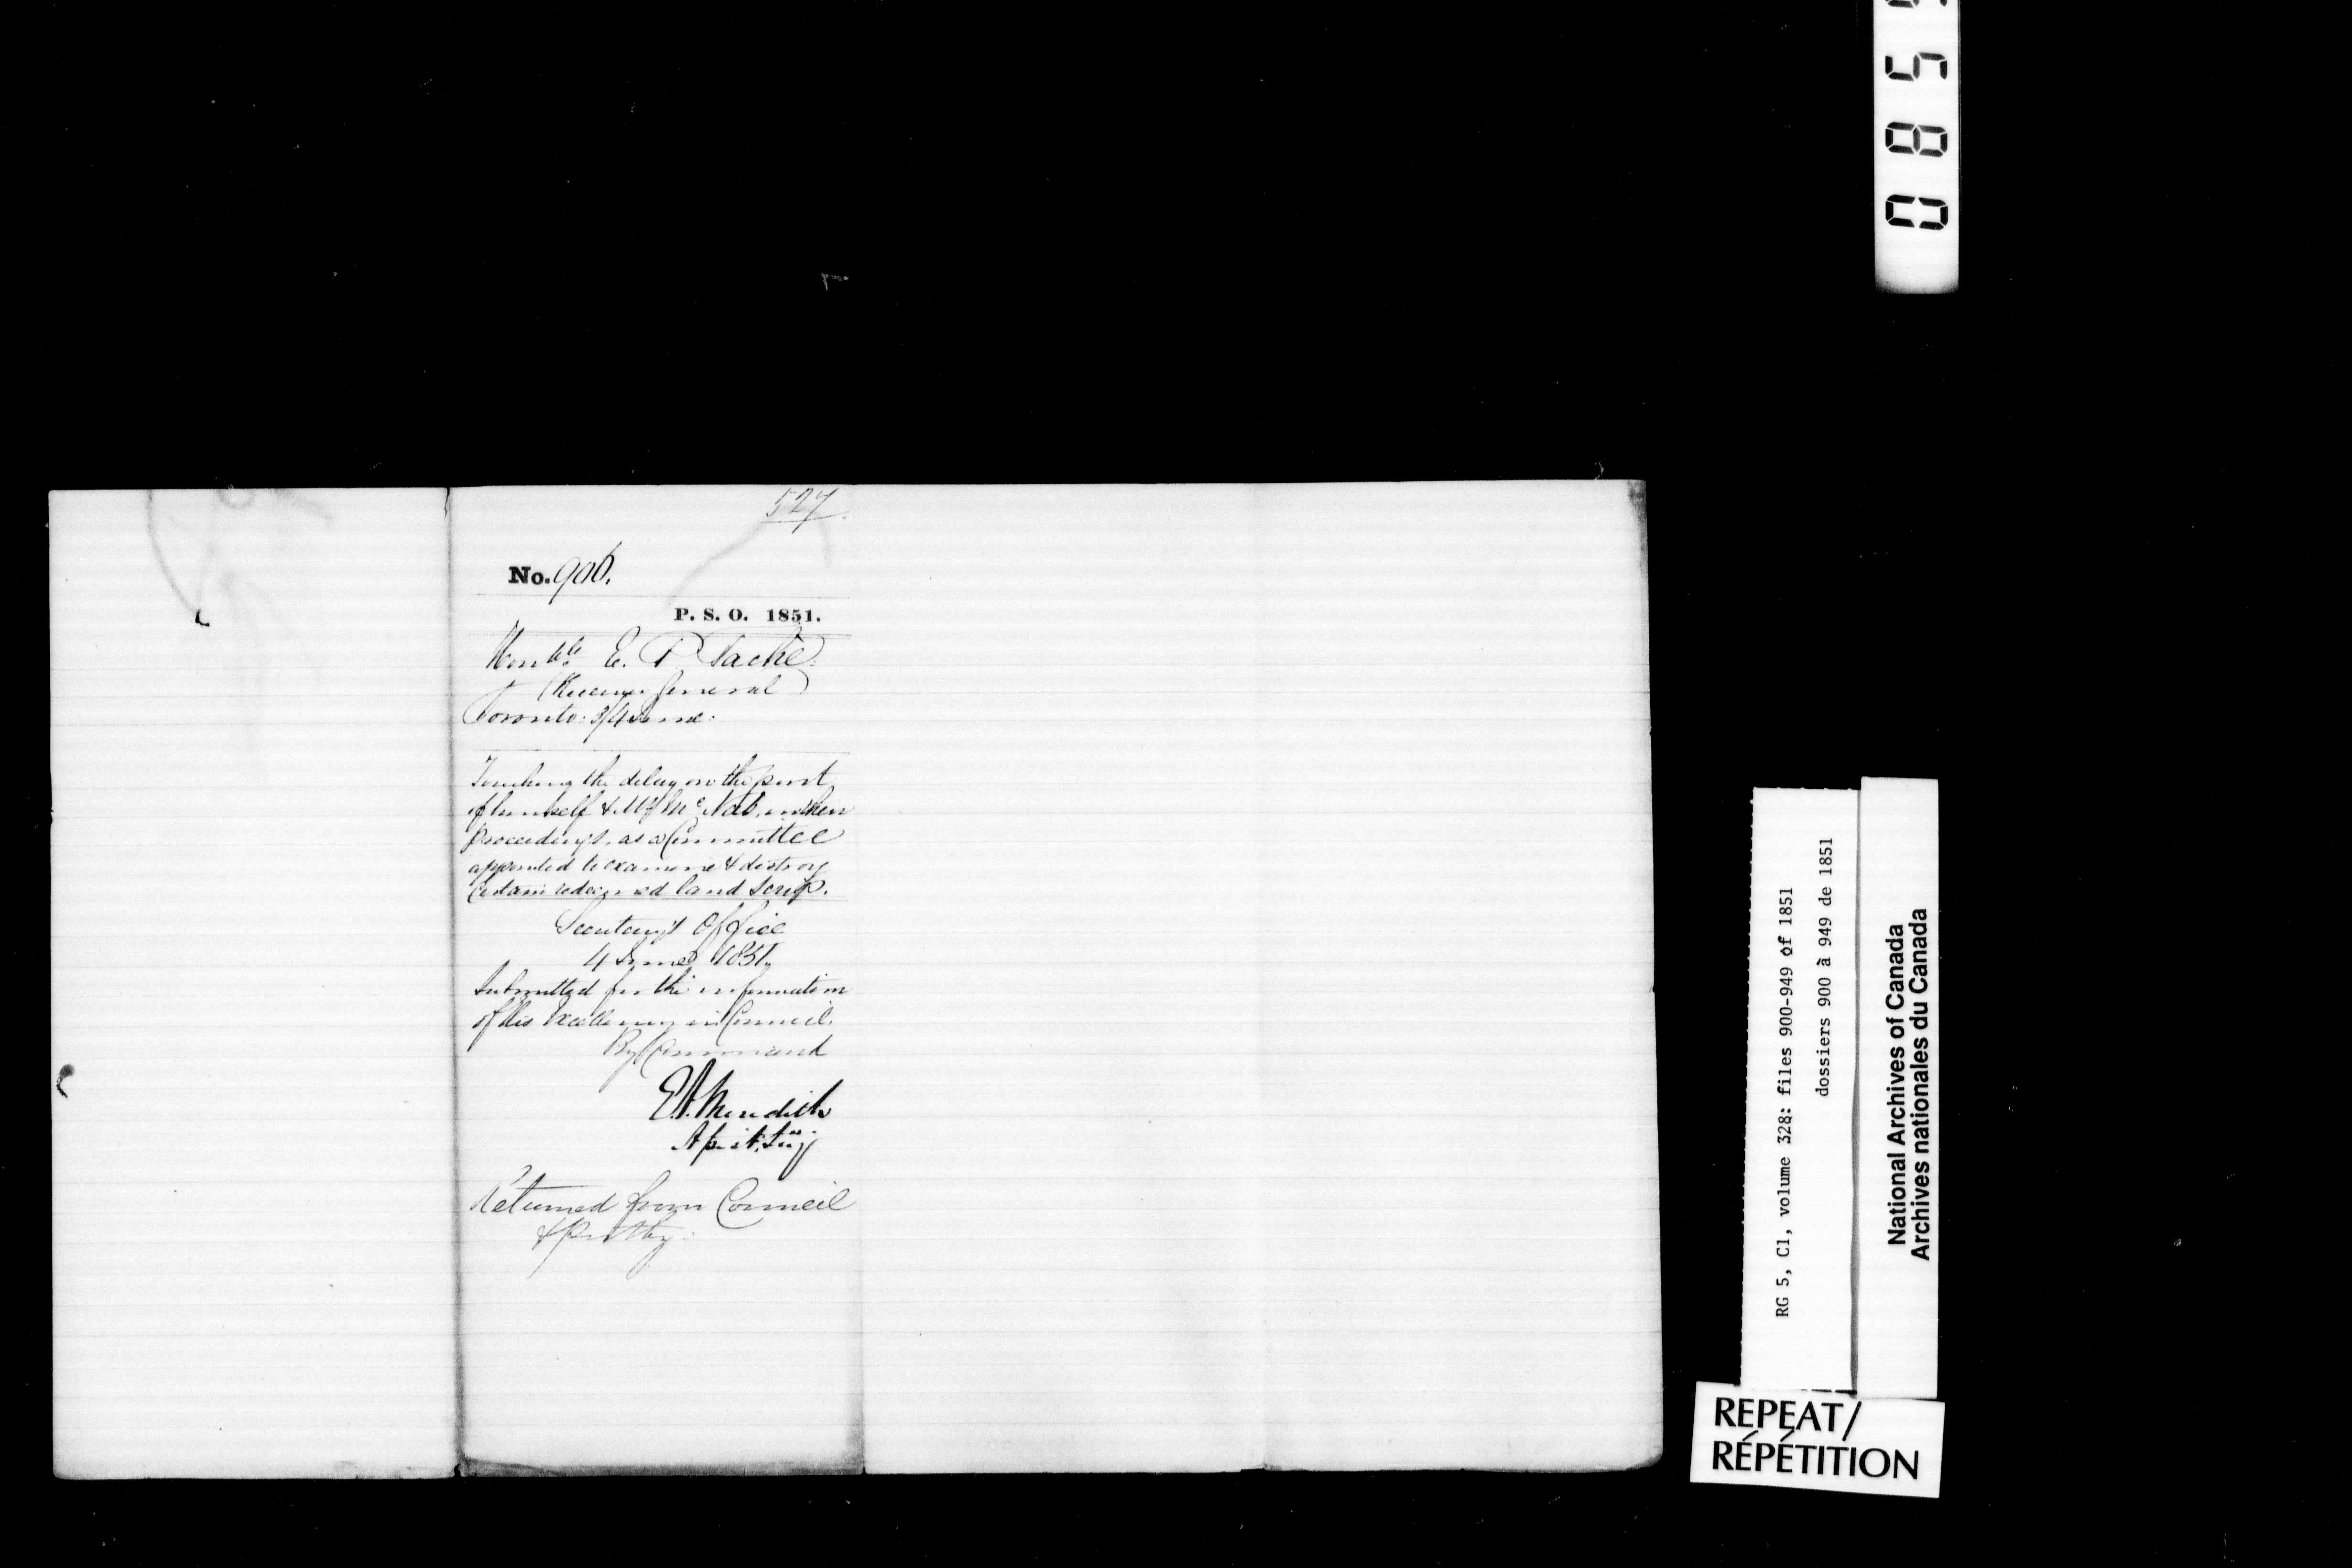 527
No. 906.
P. S. O. 1851.
Honble. E. P. Taché
Receiver General
Toronto 3/4 June.
Touching the delay on the part
of himself & Mr McNab, in their
proceedings, as a Committee
appointed to examine & destroy
certain redeemed land scrip.
Secretary's Office
4 June 1851.
Submitted for the information
of His Excellency in Council.
By Command
E. A. Meredith
Asst. Secy
Returned from Council
0 8 5
RG 5, C1, volume 328: files 900-949 of 1851
dossiers 900 à 949 de 1851
National Archives of Canada
Archives nationales du Canada
REPEAT/
RÉPÉTITION